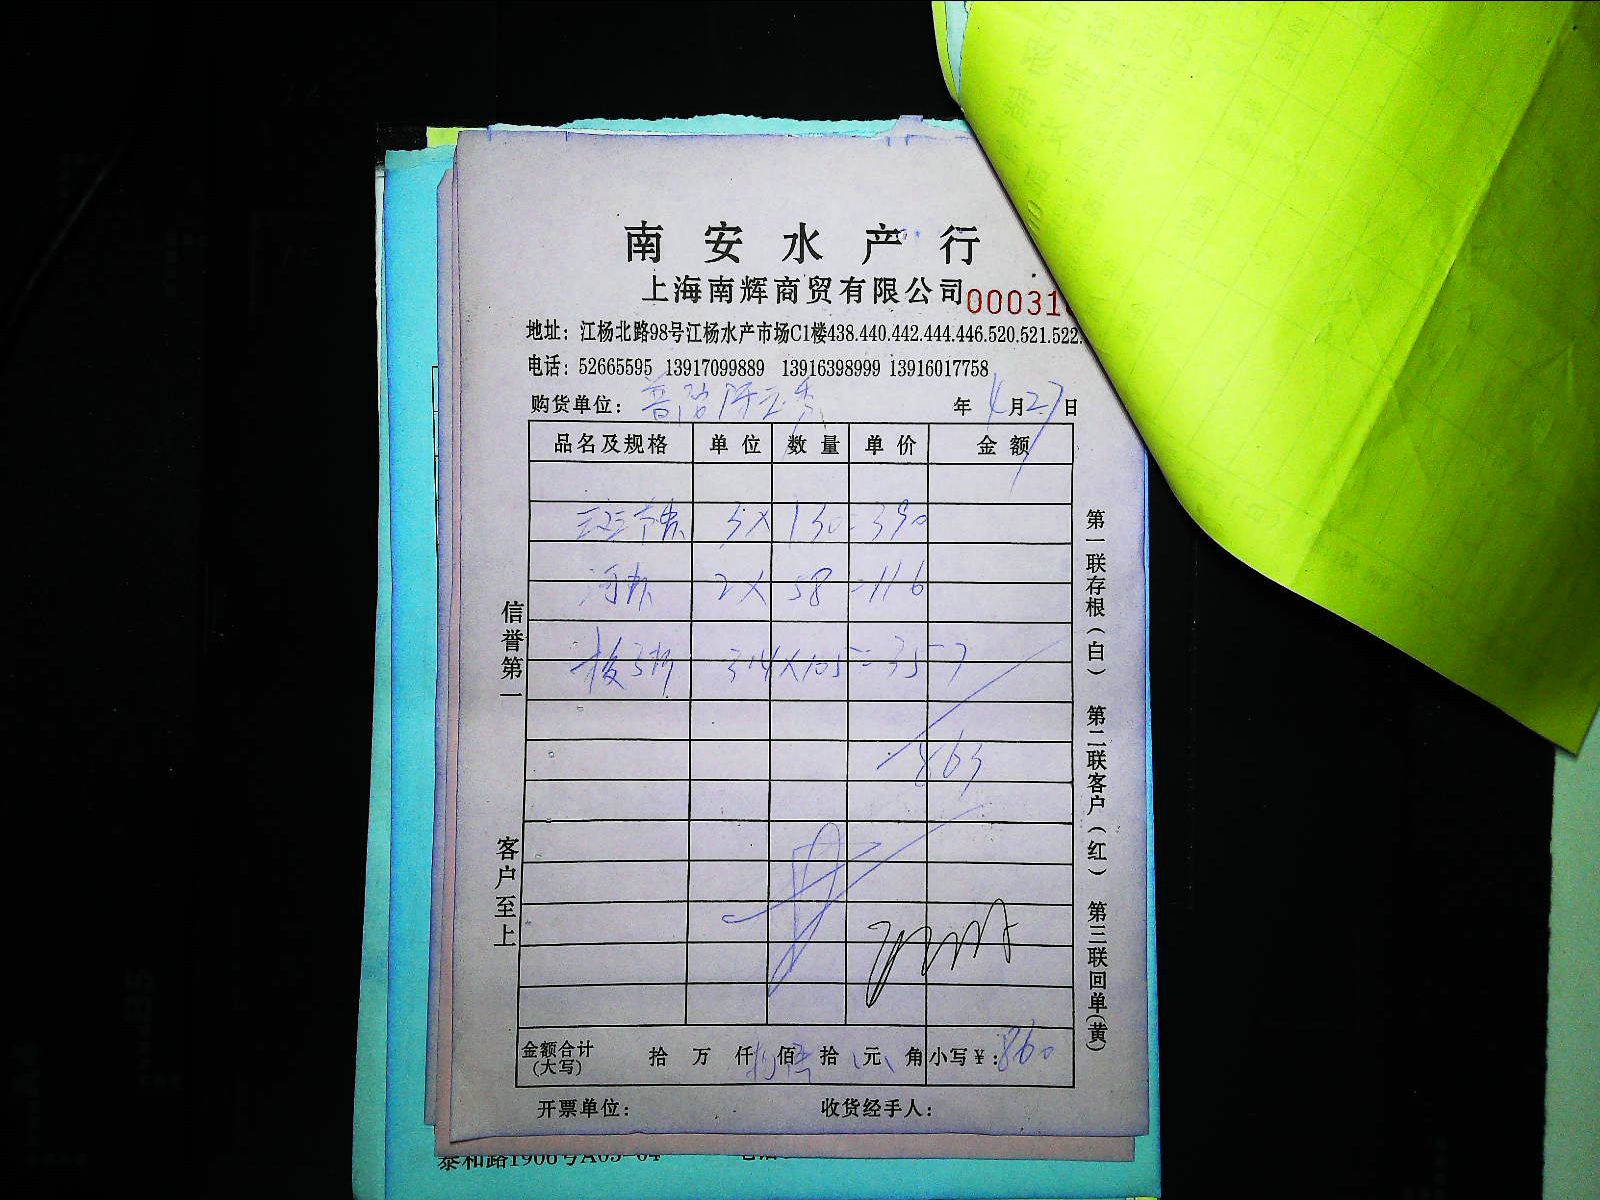 南安水产行
上海南辉商贸有限公司 00031
地址：江杨北路98号江杨水产市场C1楼438.440.442.444.446.520.521.522.
电话：52665595 13917099889 13916398999 13916017758
购货单位： 年 4月27日
品名及规格 单位 数量 单价 金额
斑节虾 3X130=390
河虾 2X58=116
梭子蟹 3.4X105=357
863
金额合计(大写) 拾 万 仟 捌佰 拾 元 角 小写¥：860
开票单位： 收货经手人：
信誉第一
客户至上
第一联存根（白） 第二联客户（红） 第三联回单(黄)
泰和路1906号A03-04